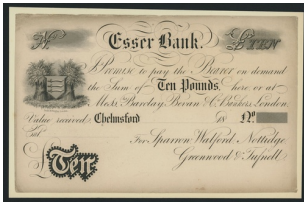 No. Essex Bank. £TEN
I Promise to pay the Bearer on demand
the Sum of Ten Pounds, here or at
Messrs. Barclay, Bevan & Co. Bankers, London
Value received Chelmsford 18 No
For Sparrow Walford, Nottidge
Greenwood & Tufnell
£Ten